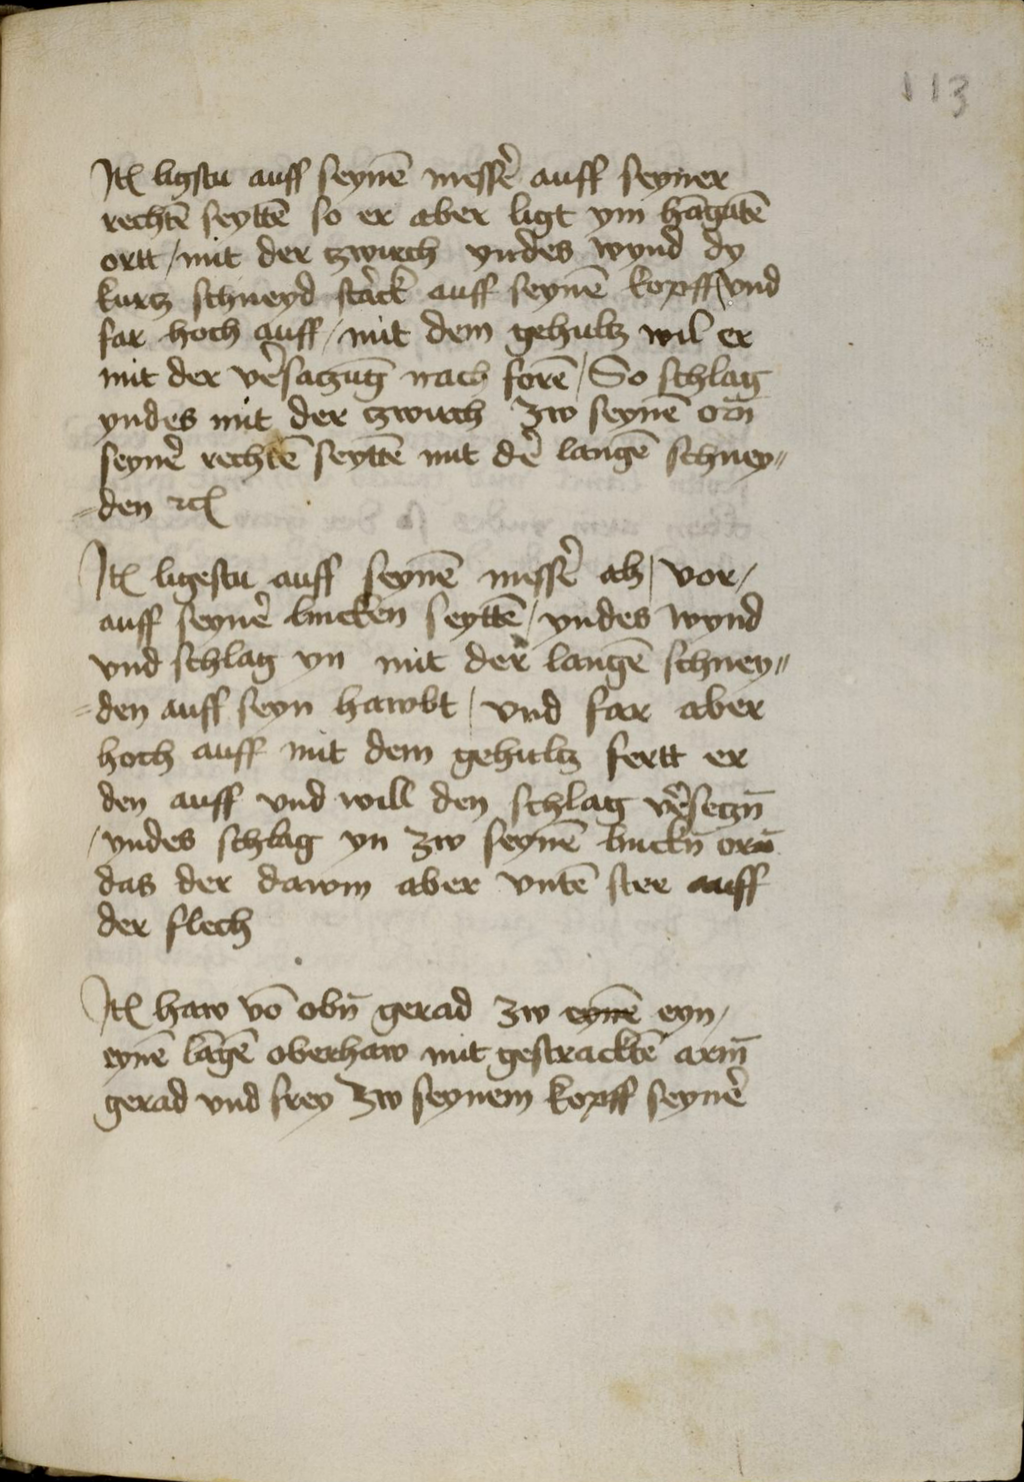 113
Jt̃ ligstu auff seynē messẽ auff seyner
rechtē seyttē so er aber ligt ym hāgūtē
ortt / mit der zwirch yndes wynd dy
kurtz schneyd starck auff seynē kopff / vnd
far hoch auff / mit dem gehultz wil er
mit der vẽsaczūg nach forē / So schlag
yndes mit der zwirch zw seynē orn̄
seynẽ rechtē seyttē mit dẽ langē schney〃
=den ⁊c̃
Jt̃ ligestu auff seynē messẽ ab / vor /
auff seynẽ lincken seyttē / yndes wynd
vnd schlag yn mit der langē schney〃
=den auff seyn hawbt / vnd far aber
hoch auff mit dem gehultz fertt er
den auff vnd will den schlag vẽseczn̄
/ yndes schlag yn zw seynē linckn̄ orn̄
das der dawm aber vntē stee auff
der flech
Jt̃ haw vō obn̄ gerad zw eynē eyn /
eynē lāgē oberhaw mit gestracktē arm̄
gerad vnd frey zw seynem kopff seynẽ